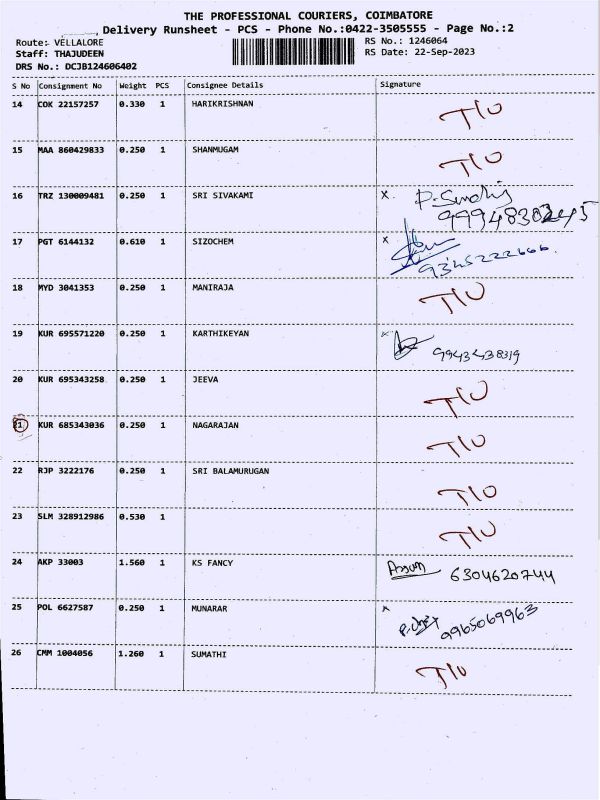 THE PROFESSIONAL COURIERS, COIMBATORE
Delivery Runsheet - PCS - Phone No.:0422-3505555 - Page No.:2
Route: VELLALORE RS No.: 1246064
Staff: THAJUDEEN RS Date: 22-Sep-2023
DRS No.: DCJB124606402
S No Consignment No Weight PCS Consignee Details Signature
14 COK 22157257 0.330 1 HARIKRISHNAN T/O
15 MAA 860429833 0.250 1 SHANMUGAM T/O
16 TRZ 130009481 0.250 1 SRI SIVAKAMI X.
17 PGT 6144132 0.610 1 SIZOCHEM X
9345222666
18 MYD 3041353 0.250 1 MANIRAJA T/O
19 KUR 695571220 0.250 1 KARTHIKEYAN X
9943438319
20 KUR 695343258 0.250 1 JEEVA T/O
21 KUR 685343036 0.250 1 NAGARAJAN T/O
22 RJP 3222176 0.250 1 SRI BALAMURUGAN T/O
23 SLM 328912986 0.530 1 T/O
24 AKP 33003 1.560 1 KS FANCY 6304620744
25 POL 6627587 0.250 1 MUNARAR X
9965069963
26 CMM 1004056 1.260 1 SUMATHI T/O